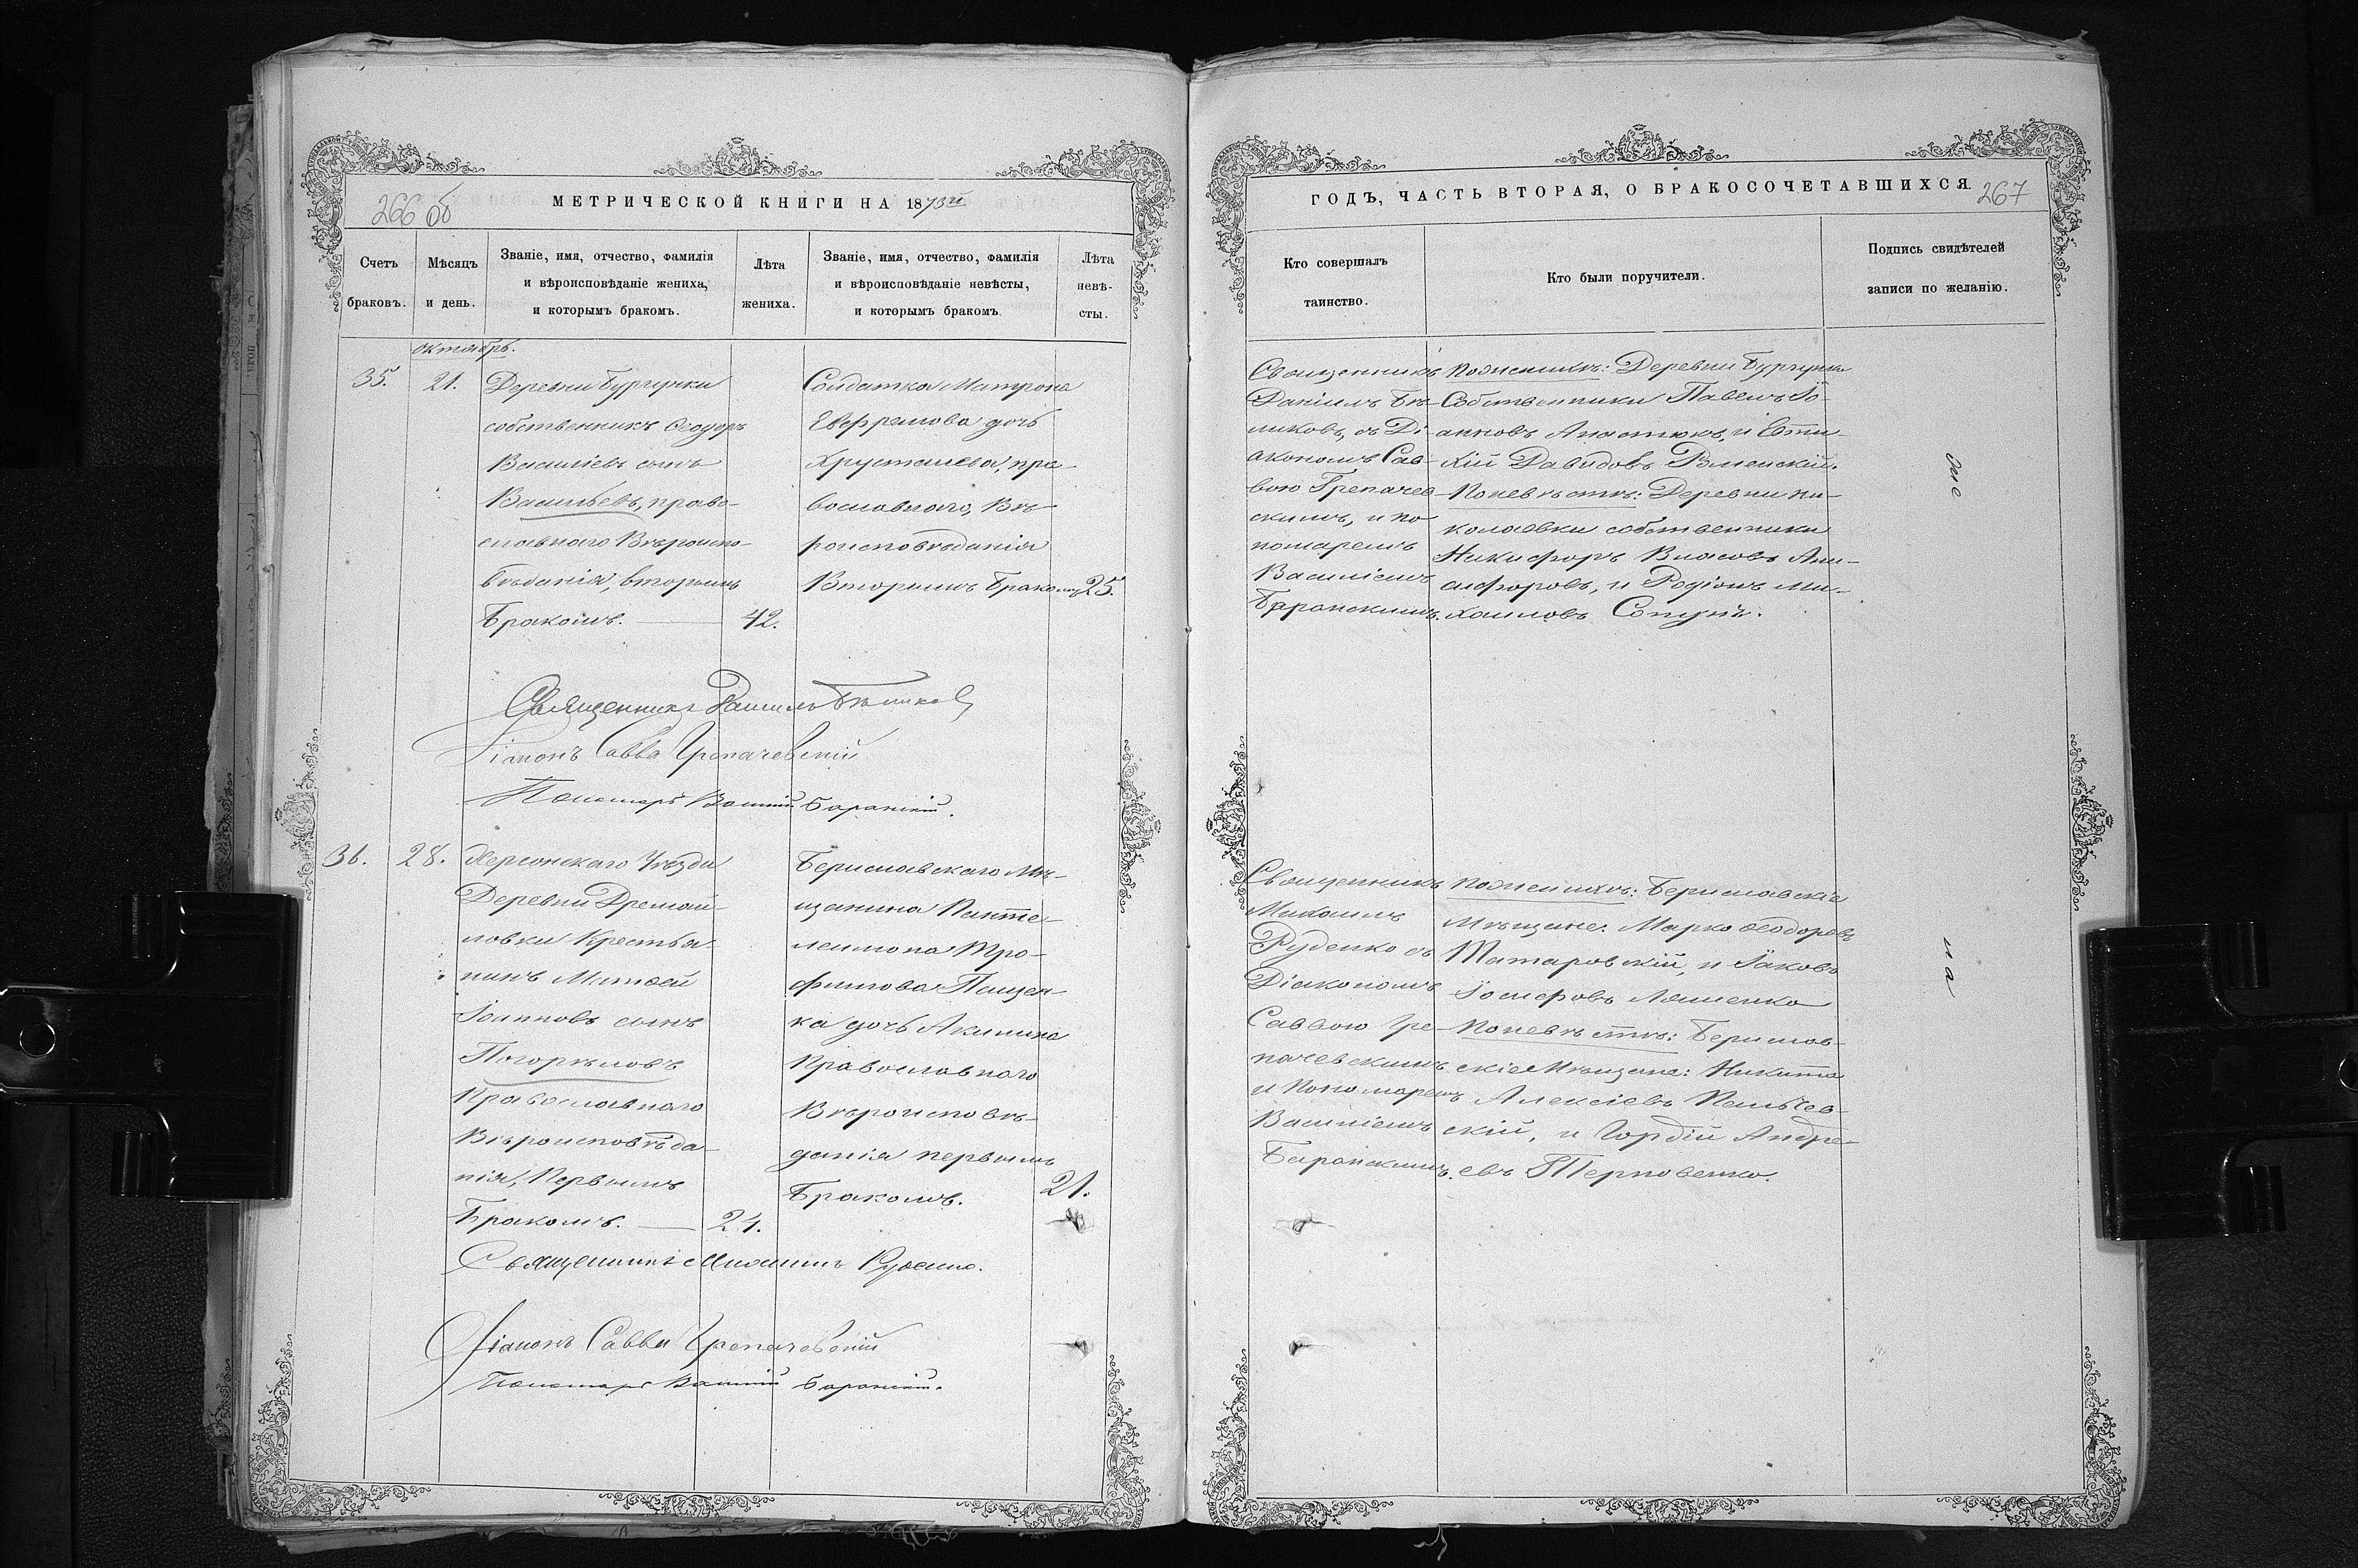 266 об
МЕТРИЧЕСКОЙ КНИГИ НА 1873й
Счетъ браковъ.
Мѣсяцъ и день.
Званіе, имя, отчество, фамилія
и вѣроисповѣданіе жениха,
и которымъ бракомъ.
Лѣта жениха.
Званіе, имя, отчество, фамилія
и вѣроисповѣданіе невѣсты,
и которымъ бракомъ
Лѣта невѣ-
сты.
октябрь.
35.
21.
Деревни Бургунки
собственникъ Ѳеодоръ
Василіевъ сынъ
Васильевъ, право-
славнаго Вѣроиспо-
вѣданія, вторымъ
Бракомъ.
42.
Солдатка Матрона
Евфремова дочь
Хрусталева, пра-
вославнаго, Вѣ-
роисповѣданія
Вторымъ Бракомъ
25.
Священникъ Даніилъ Бѣликовъ
Діаконъ Савва Грепачевскій
Пономарь Василій Баранскій.
36.
28.
Херсонскаго Уѣзда
Деревни Дремай-
ловки Крестья-
нинъ Матѳей
Іоанновъ сынъ
Погорѣловъ
Православнаго
Вѣроисповѣда-
нія, Первымъ
Бракомъ.
24.
Бериславскаго Мѣ-
щанина Панте-
леимона Тро-
фимова Пащен-
ка дочь Акилина
Православнаго
Вѣроисповѣ-
данія первымъ
Бракомъ.
21.
Священникъ Михаилъ Руденко.
Діаконъ Савва Грепачевскій
Пономарь Василій Баранскій.
ГОДЪ, ЧАСТЬ ВТОРАЯ, О БРАКОСОЧЕТАВШИХСЯ.
267
Кто совершалъ
таинство.
Кто были поручители.
Подпись свидѣтелей
записи по желанію.
Священникъ
Даніилъ Бѣ-
ликовъ, съ Ді-
акономъ Сав-
вою Грепачев-
скимъ, и по
номаремъ
Василіемъ
Баранскимъ.
по женихѣ: Деревни Бургунки
Собственники Павелъ Іо-
анновъ Апастюкъ, и Евти-
хій Давидовъ
По невѣстѣ: Деревни Ни-
колаевки собственники
Никифоръ Власовъ
и Родіонъ Ми-
хаиловъ
Священникъ
Михаилъ
Руденко съ
Діакономъ
Саввою Гре-
пачевскимъ
и Пономаремъ
Василіемъ
Баранскимъ.
по женихѣ: Бериславскіе
Мѣщане: Марко Ѳеодоровъ
Татаровскій, и Іаковъ
Іосифовъ Ляшенко
По невѣстѣ: Берислав-
скіе Мѣщане: Никита
Алексіевъ Пальчев-
скій, и Гордій Андре-
евъ Терновенко.